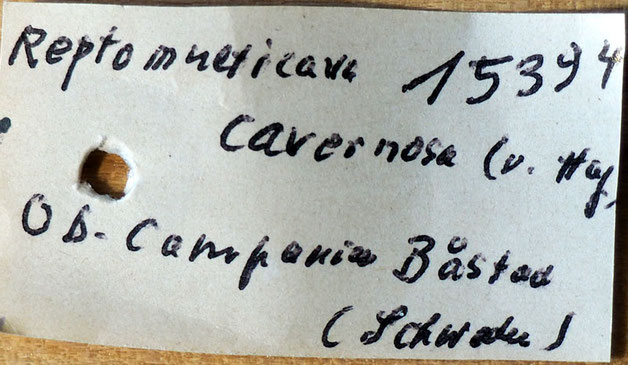 Reptomulticava 15394
cavernosa (v. Hag)
Ob. Campanian Båstad
(Schweden)